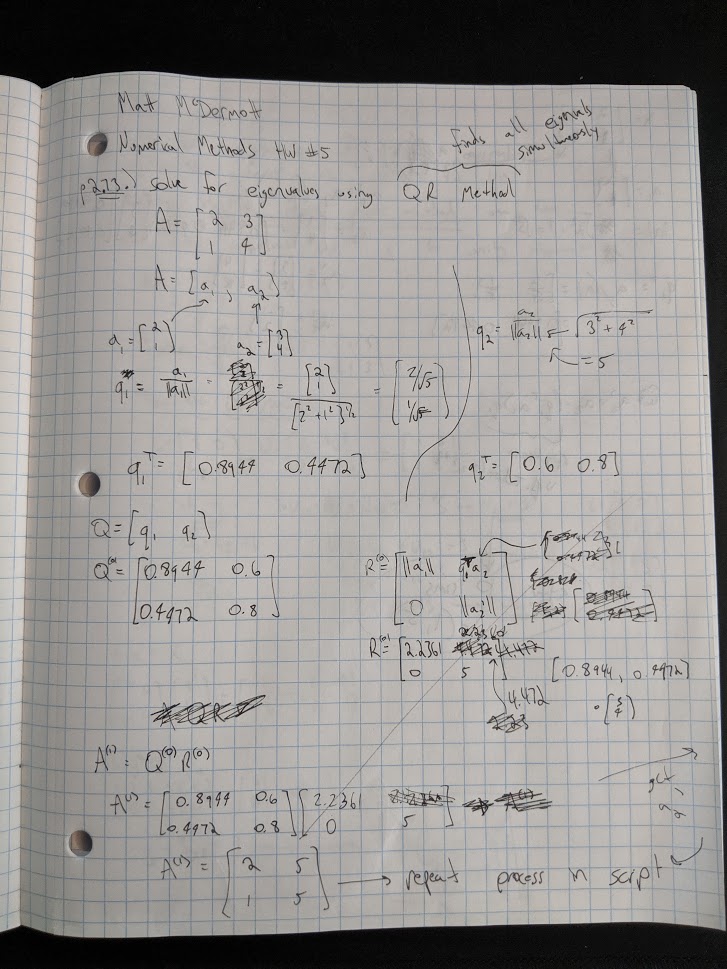 Matt McDermott
Numerical Methods HW #5
finds all eigenvals
simultaneously
p2.73.) solve for eigenvalues using QR Method
A = [2 3
1 4]
A = [a₁, a₂]
a₁ = [2
1]
a₂ = [3
4]
q₁ = a₁/||a₁|| = [2
1]/[2² + 1²]^½ = [2/√5
1/√5]
q₂ = a₂/||a₂|| ← √3² + 4²
= 5
q₁ᵀ = [0.8944 0.4472]
q₂ᵀ = [0.6 0.8]
Q = [q₁ q₂]
Q⁽⁰⁾ = [0.8944 0.6
0.4472 0.8]
R⁽⁰⁾ = [||a₁|| q₁ᵀa₂
0 ||a₂||]
R⁽⁰⁾ = [2.2361
0 5]
4.472
[0.8944, 0.4472]
· [3
4]
A⁽¹⁾ = Q⁽⁰⁾R⁽⁰⁾
A⁽¹⁾ = [0.8944 0.6
0.4472 0.8] [2.2361
0 5]
A⁽¹⁾ = [2 5
1 5] → repeat process in script